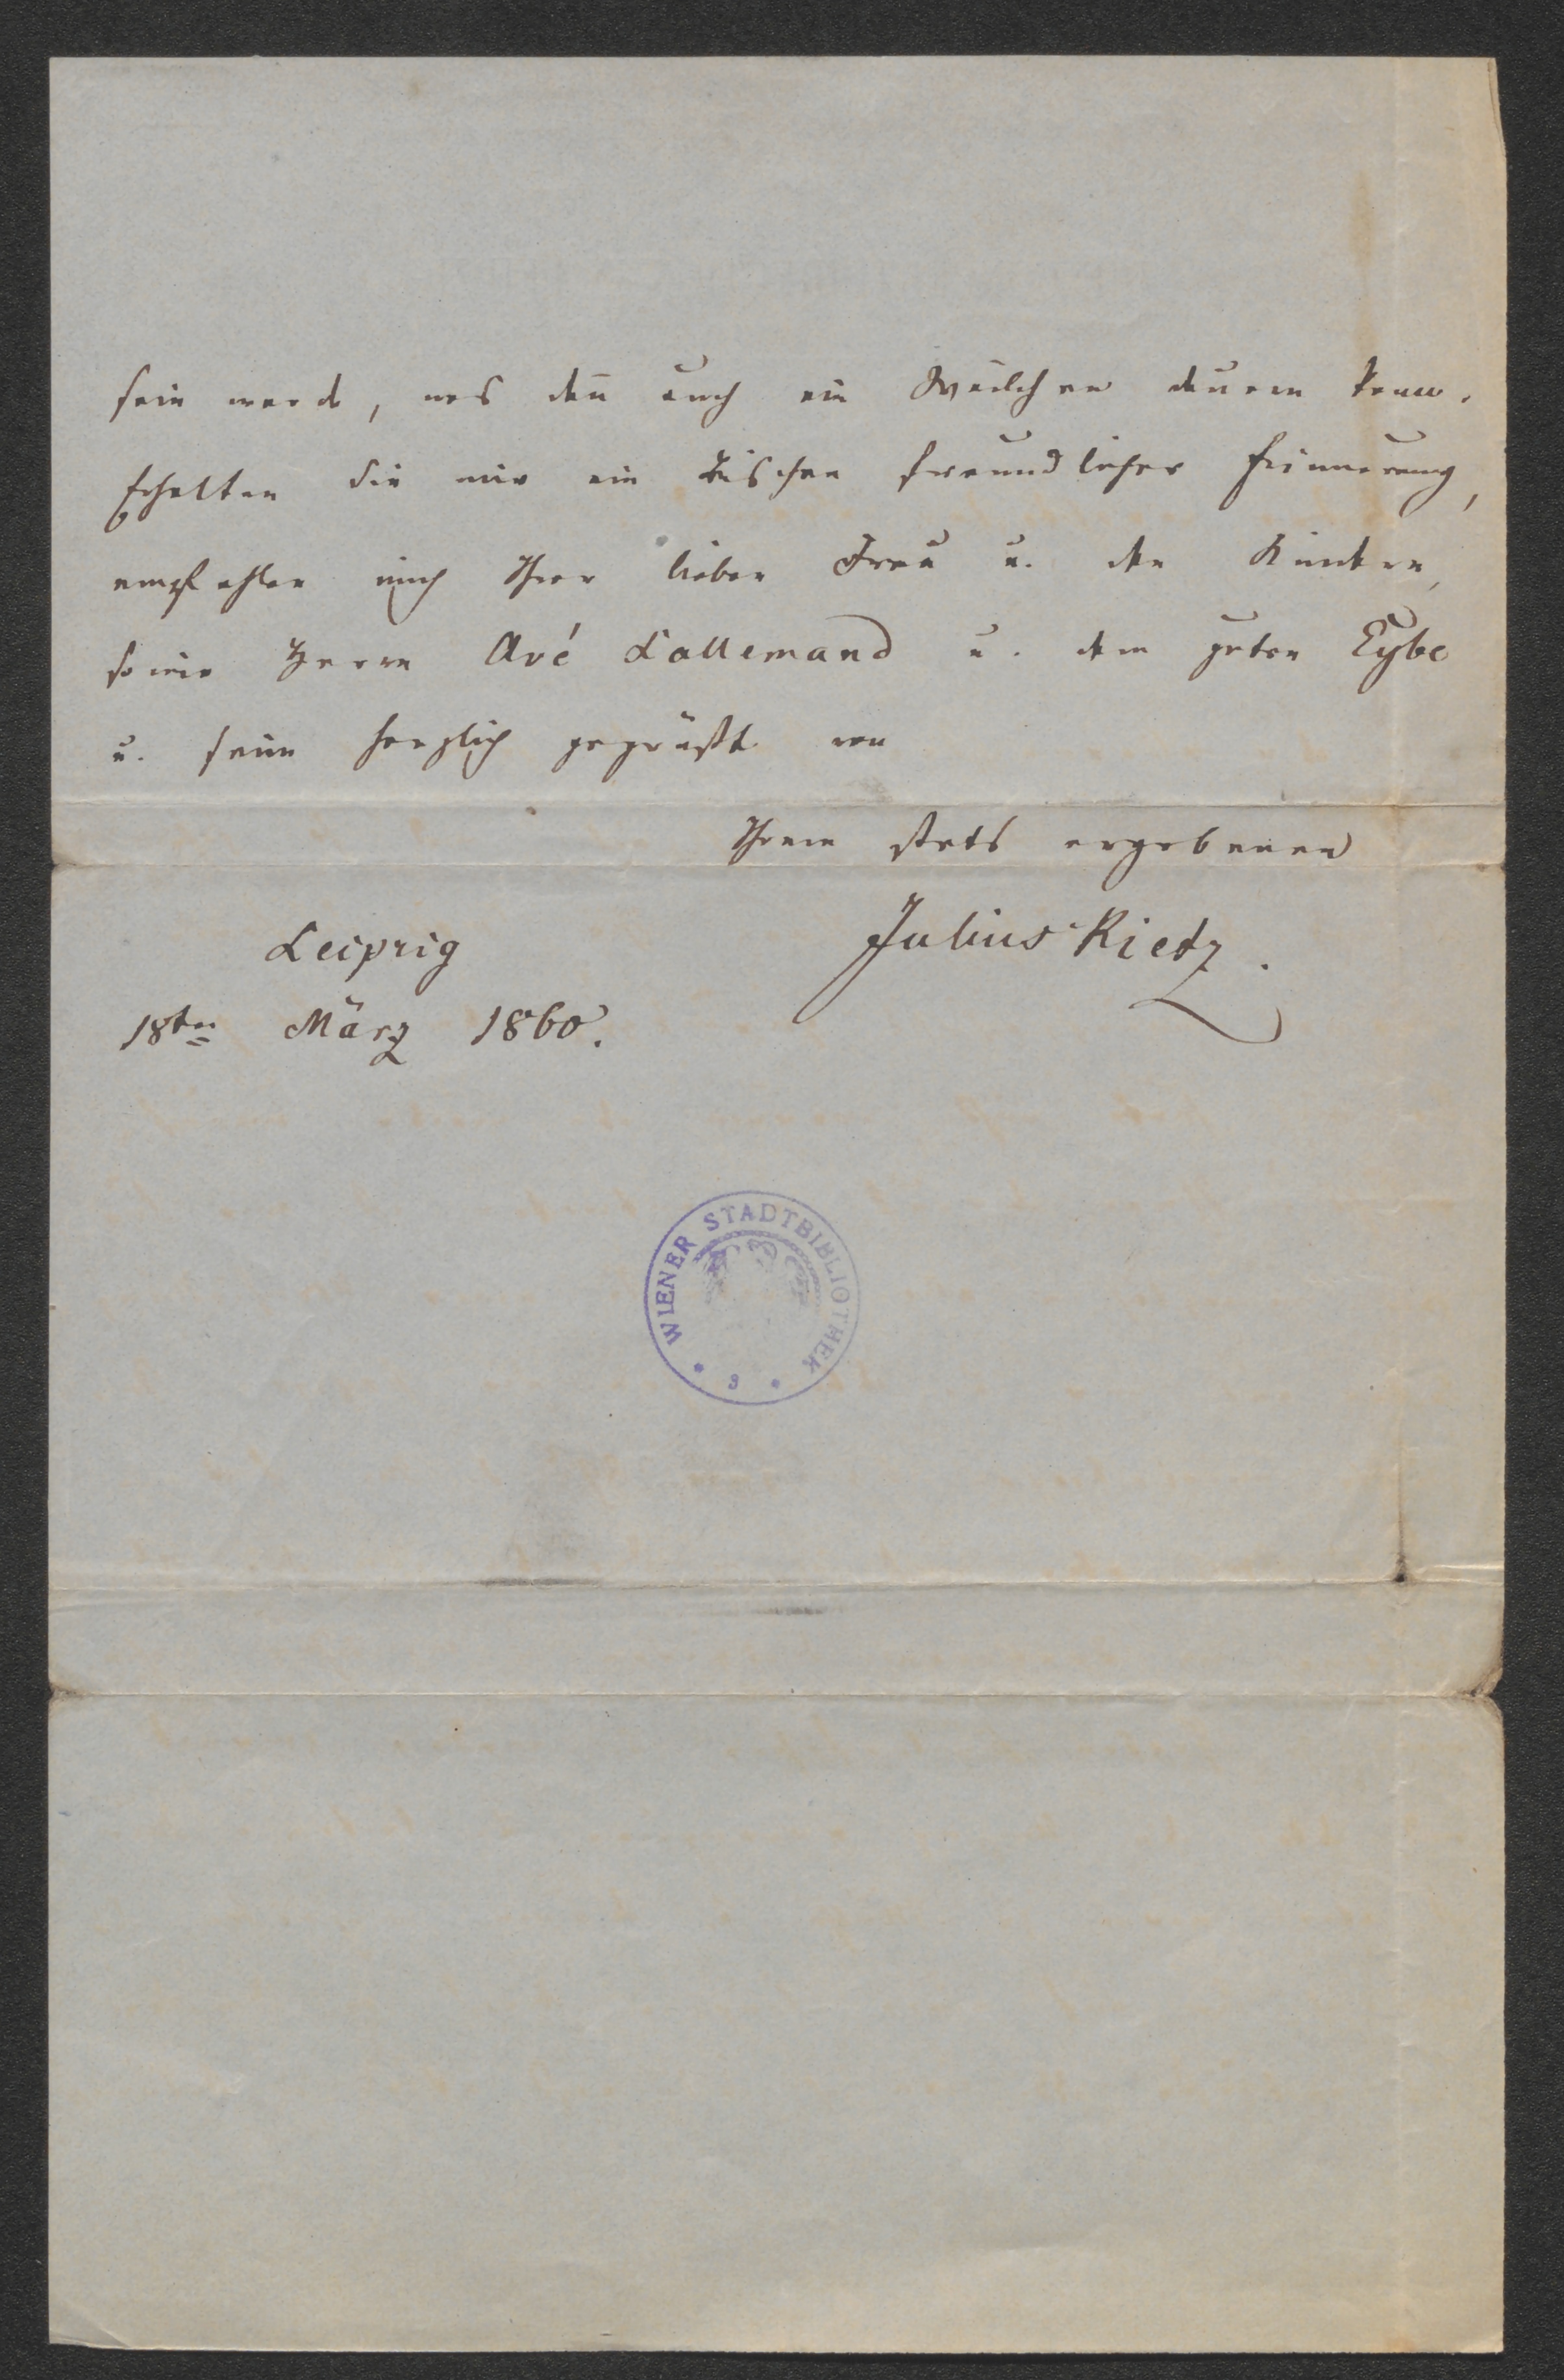 sein werde, was deñ auch ein Weilchen dauern kann.
Erhalten Sie mir ein bischen freundlicher Erinnerung,
empfehlen mich Ihrer lieben Frau u. den Kindern,
sowie Herrn Avé Lallemand u. dem guten Eybe
u. seien herzlich gegrüßt von
Ihrem stets ergebenen
Julius Rietz.
Leipzig
18ten März 1860.
WIENER STADTBIBLIOTHEK